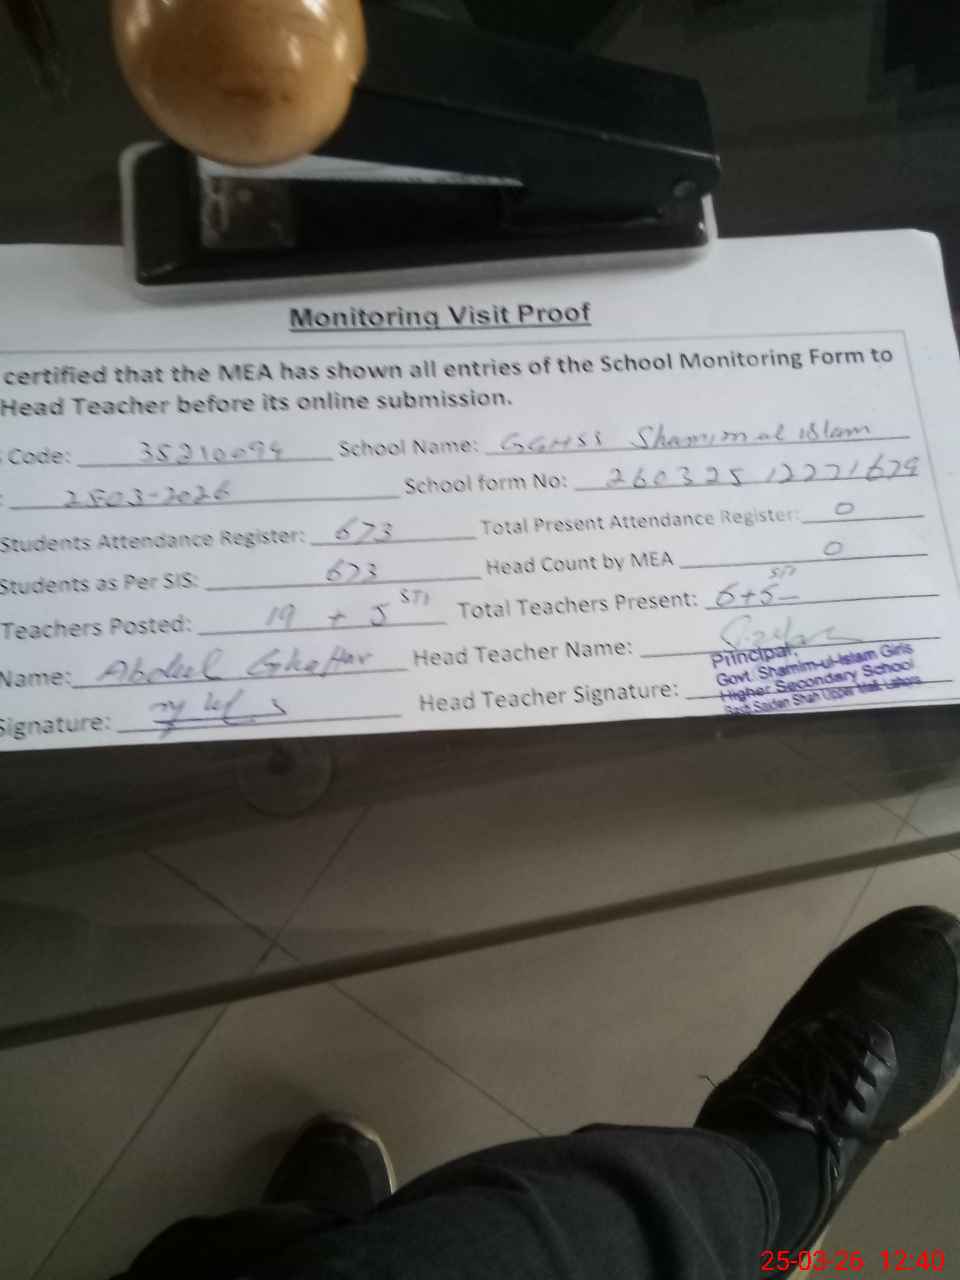 Monitoring Visit Proof
certified that the MEA has shown all entries of the School Monitoring Form to
Head Teacher before its online submission.
Code: 35210094 School Name: GGHSS Shamim ul islam
2503-2026 School form No: 260325 12271679
Students Attendance Register: 673 Total Present Attendance Register: 0
Students as Per SIS: 673 Head Count by MEA 0
Teachers Posted: 19 + 5 STI Total Teachers Present: 6+5
Name: Abdul Ghaffar Head Teacher Name:
Signature: Head Teacher Signature:
Principal,
Govt. Shamim-ul-Islam Girls
Higher Secondary School
Saidan Shah Upper Mall Lahore
25-03-26 12:40